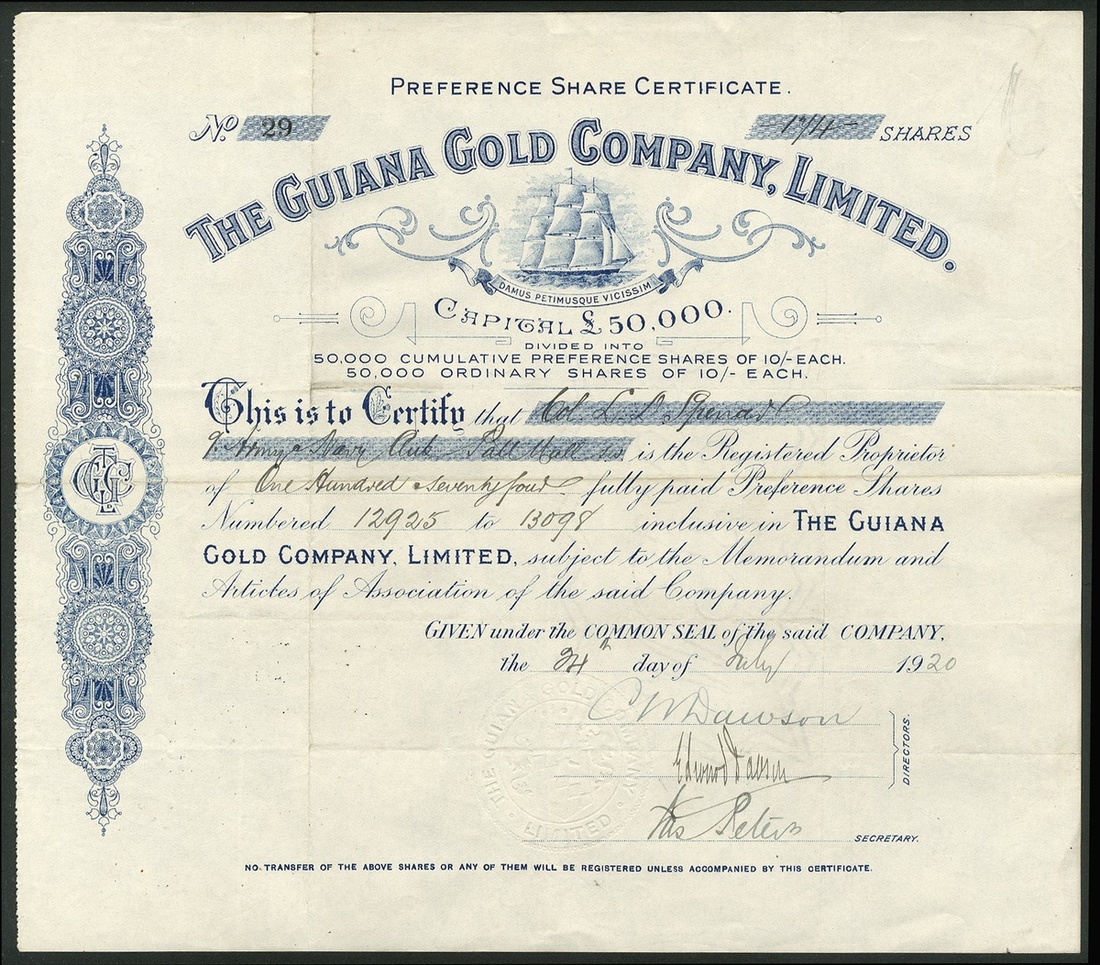 PREFERENCE SHARE CERTIFICATE.
No 29 174 SHARES
THE GUIANA GOLD COMPANY, LIMITED.
DAMUS PETIMUSQUE VICISSIM
CAPITAL £50,000.
DIVIDED INTO
50,000 CUMULATIVE PREFERENCE SHARES OF 10/- EACH.
50,000 ORDINARY SHARES OF 10/- EACH.
This is to Certify that Col L. D
Army & Navy Club, Pall Mall is the Registered Proprietor
of One Hundred & seventy four fully paid Preference Shares
Numbered 12925 to 13098 inclusive in THE GUIANA
GOLD COMPANY, LIMITED, subject to the Memorandum and
Articles of Association of the said Company.
GIVEN under the COMMON SEAL of the said COMPANY,
the 24th day of July 1920
THE GUIANA GOLD COMPANY LIMITED
C W Dawson
Edward Dawson
DIRECTORS.
Peters
SECRETARY.
NO TRANSFER OF THE ABOVE SHARES OR ANY OF THEM WILL BE REGISTERED UNLESS ACCOMPANIED BY THIS CERTIFICATE.